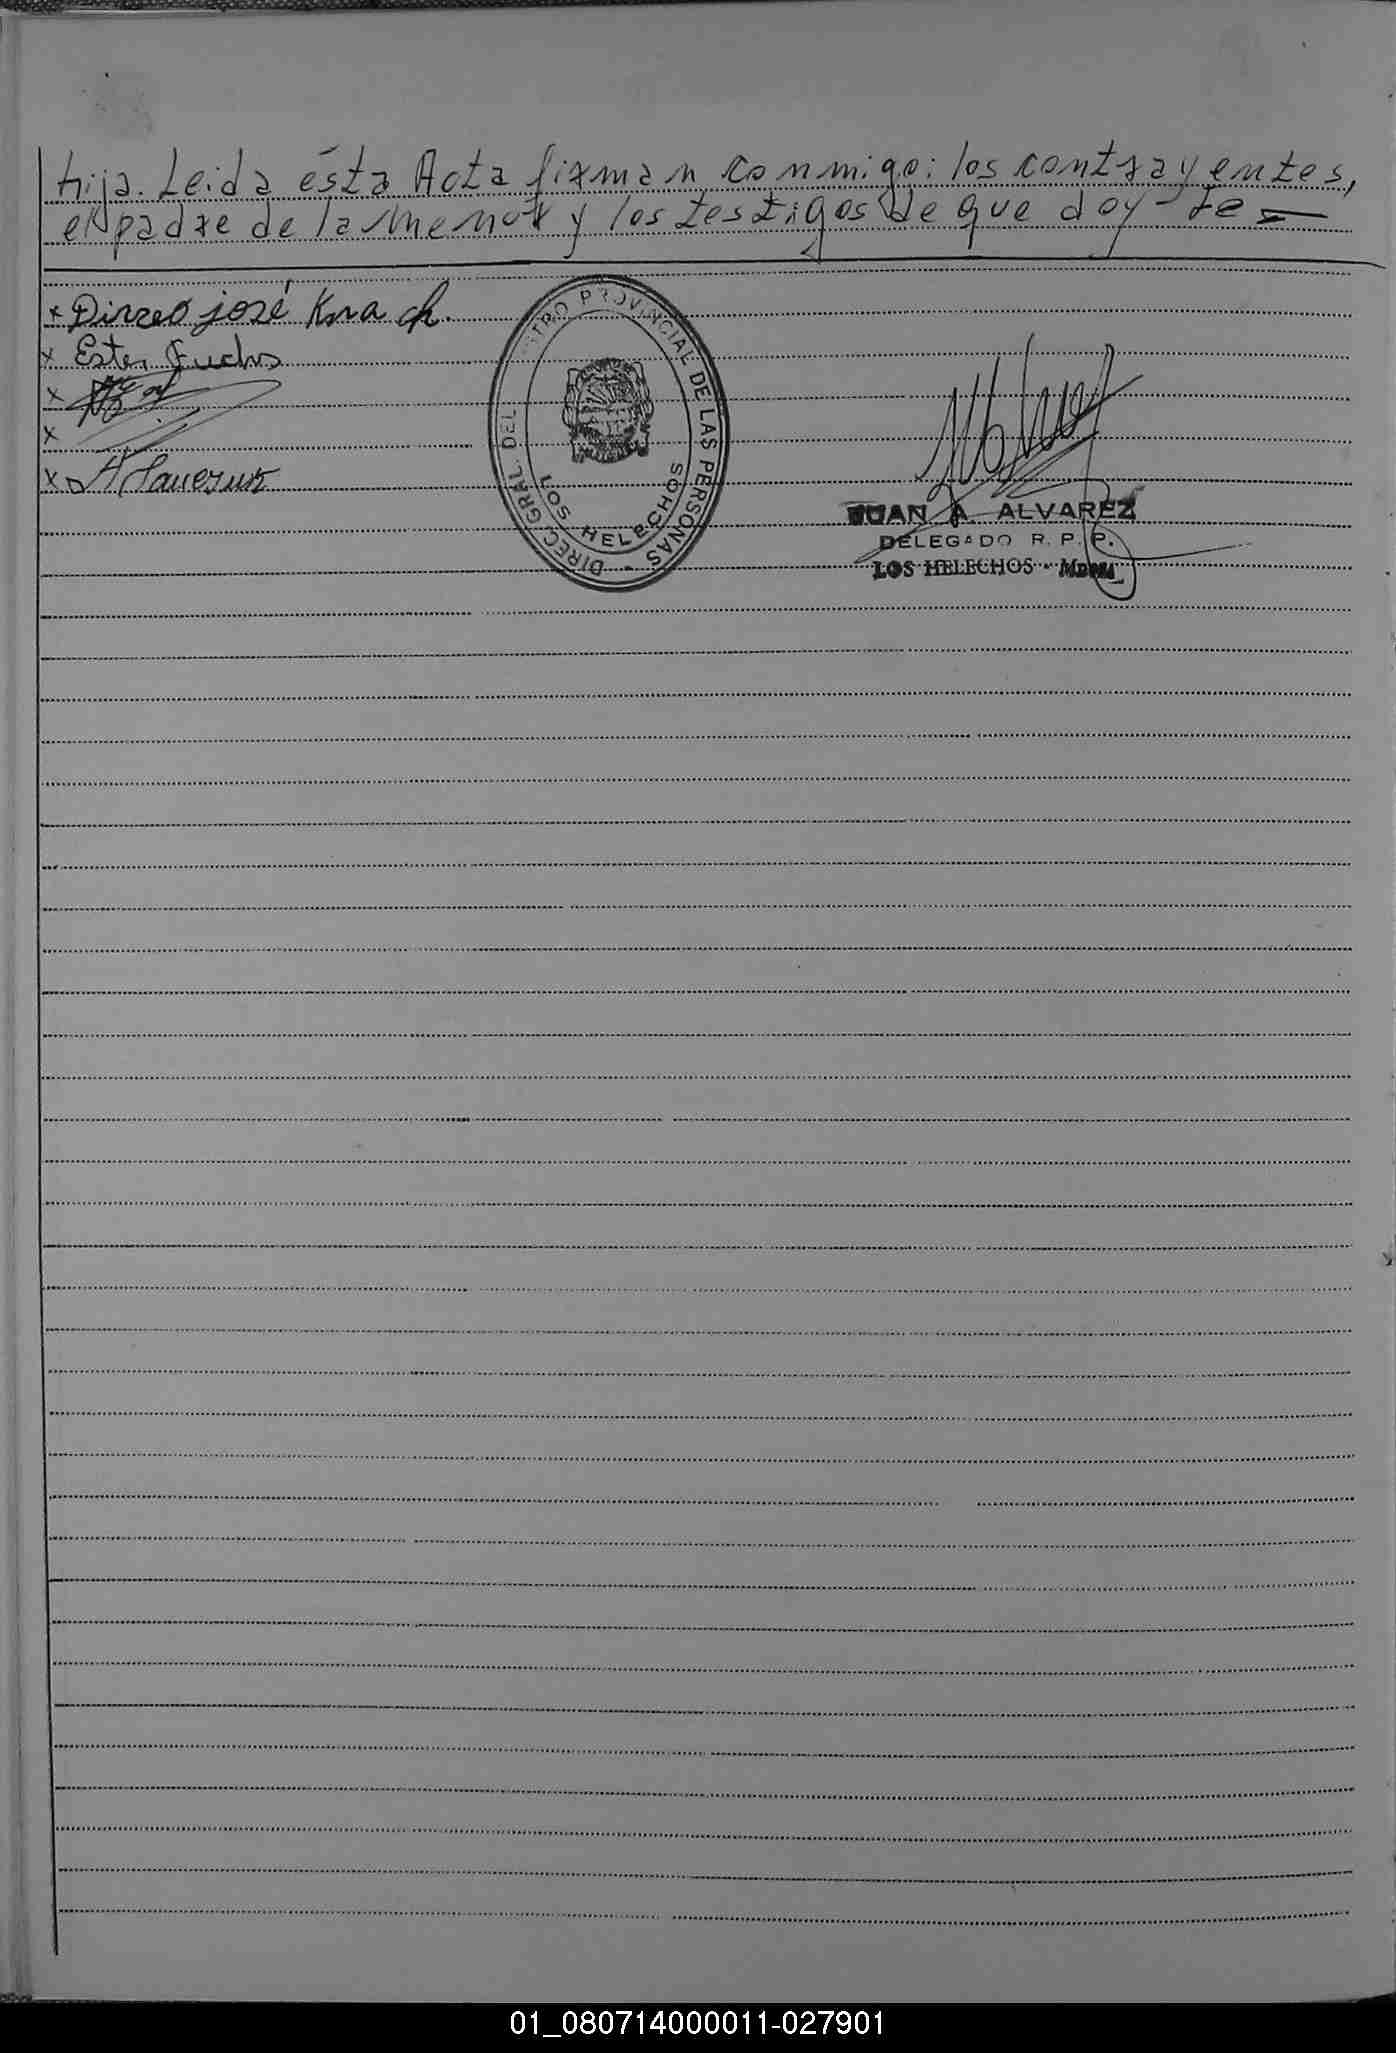 hija. Leida ésta Acta firman conmigo: los contrayentes,
el padre de la menor y los testigos de que doy fe =
x Dirceo josé Knach.
x Ester Fuchs
x
x
x
DIREC. GRAL. DEL REGISTRO PROVINCIAL DE LAS PERSONAS -
LOS HELECHOS
JUAN A. ALVAREZ
DELEGADO R. P. P.
LOS HELECHOS - Mnes.
01_080714000011-027901